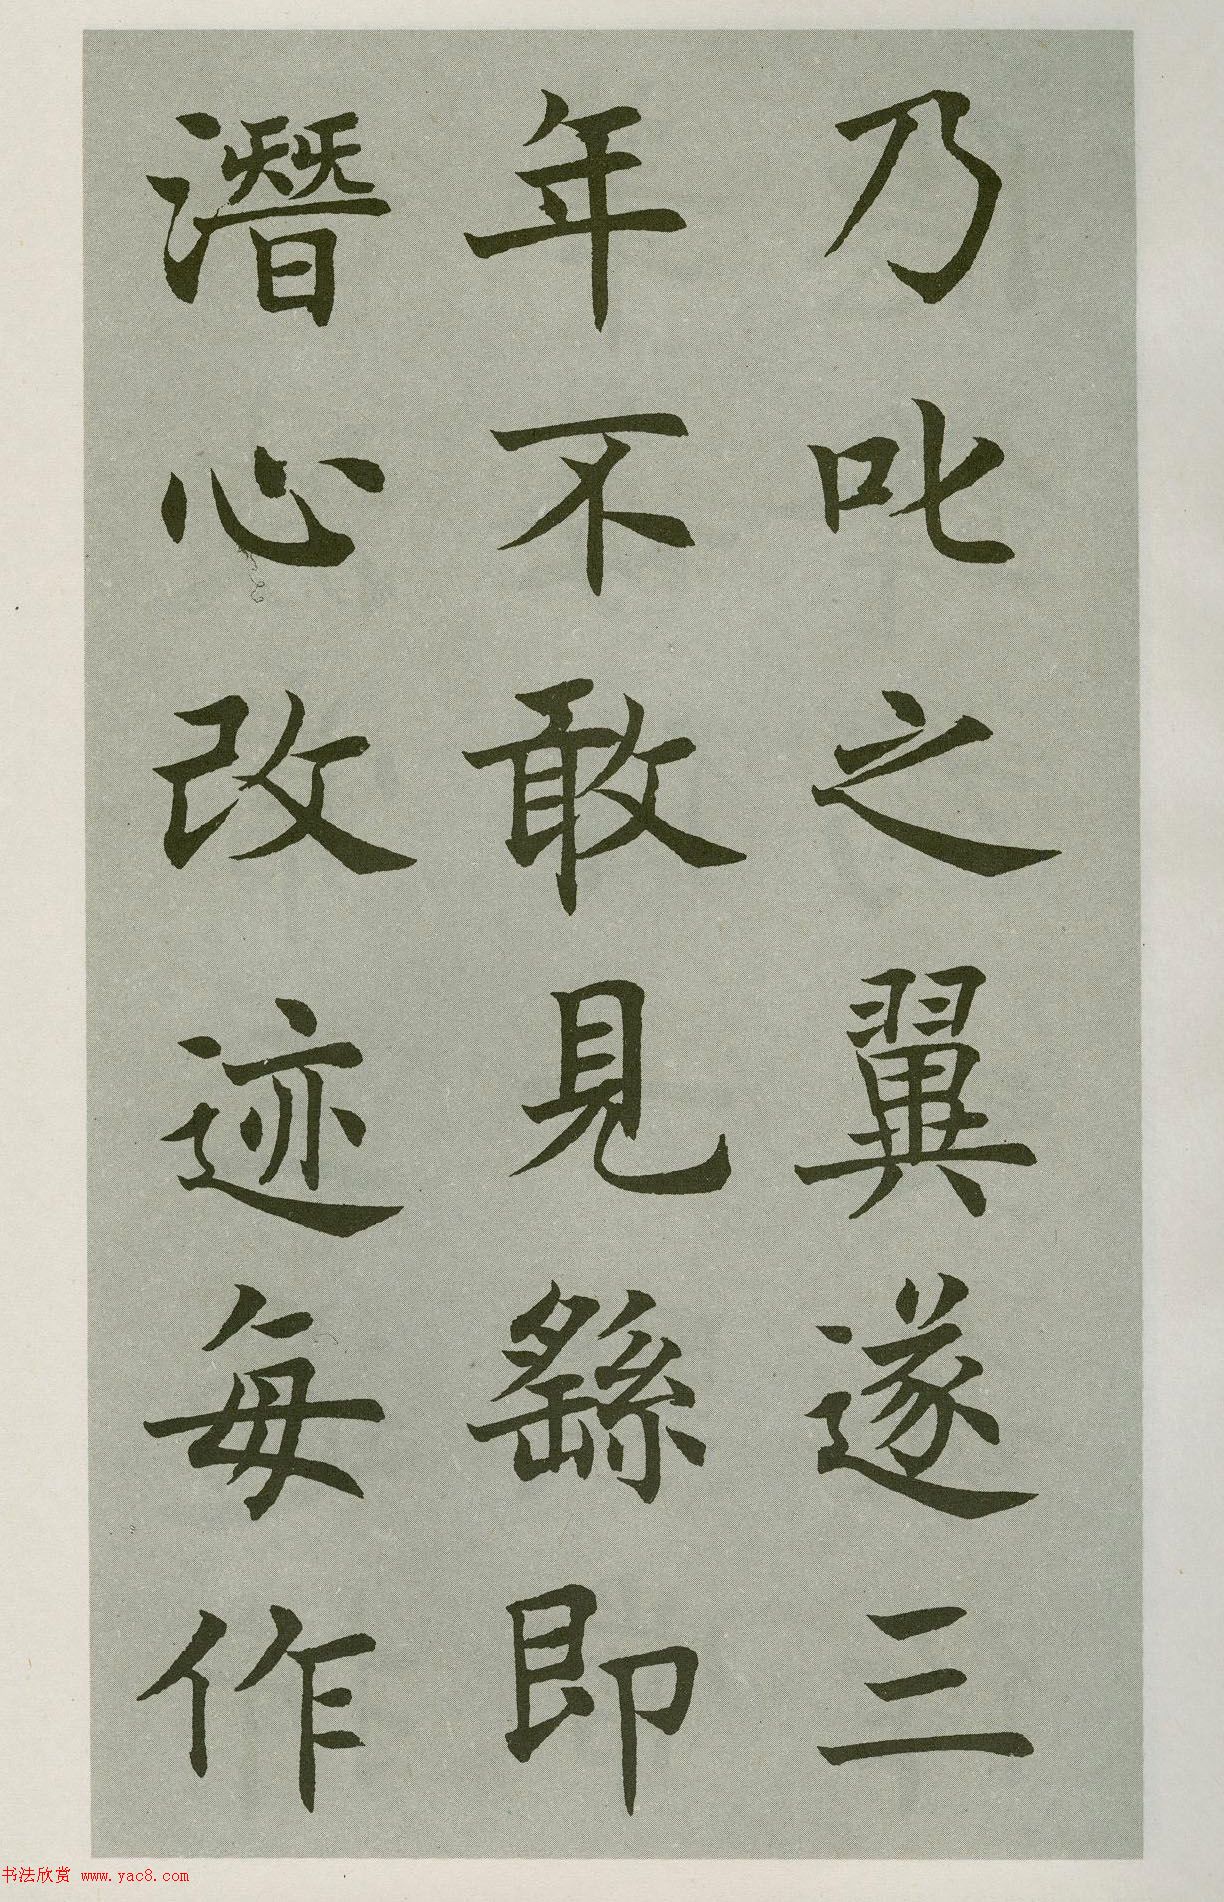 乃叱之翼遂三
年不敢見繇即
潛心改迹每作
书法欣赏 www.yac8.com